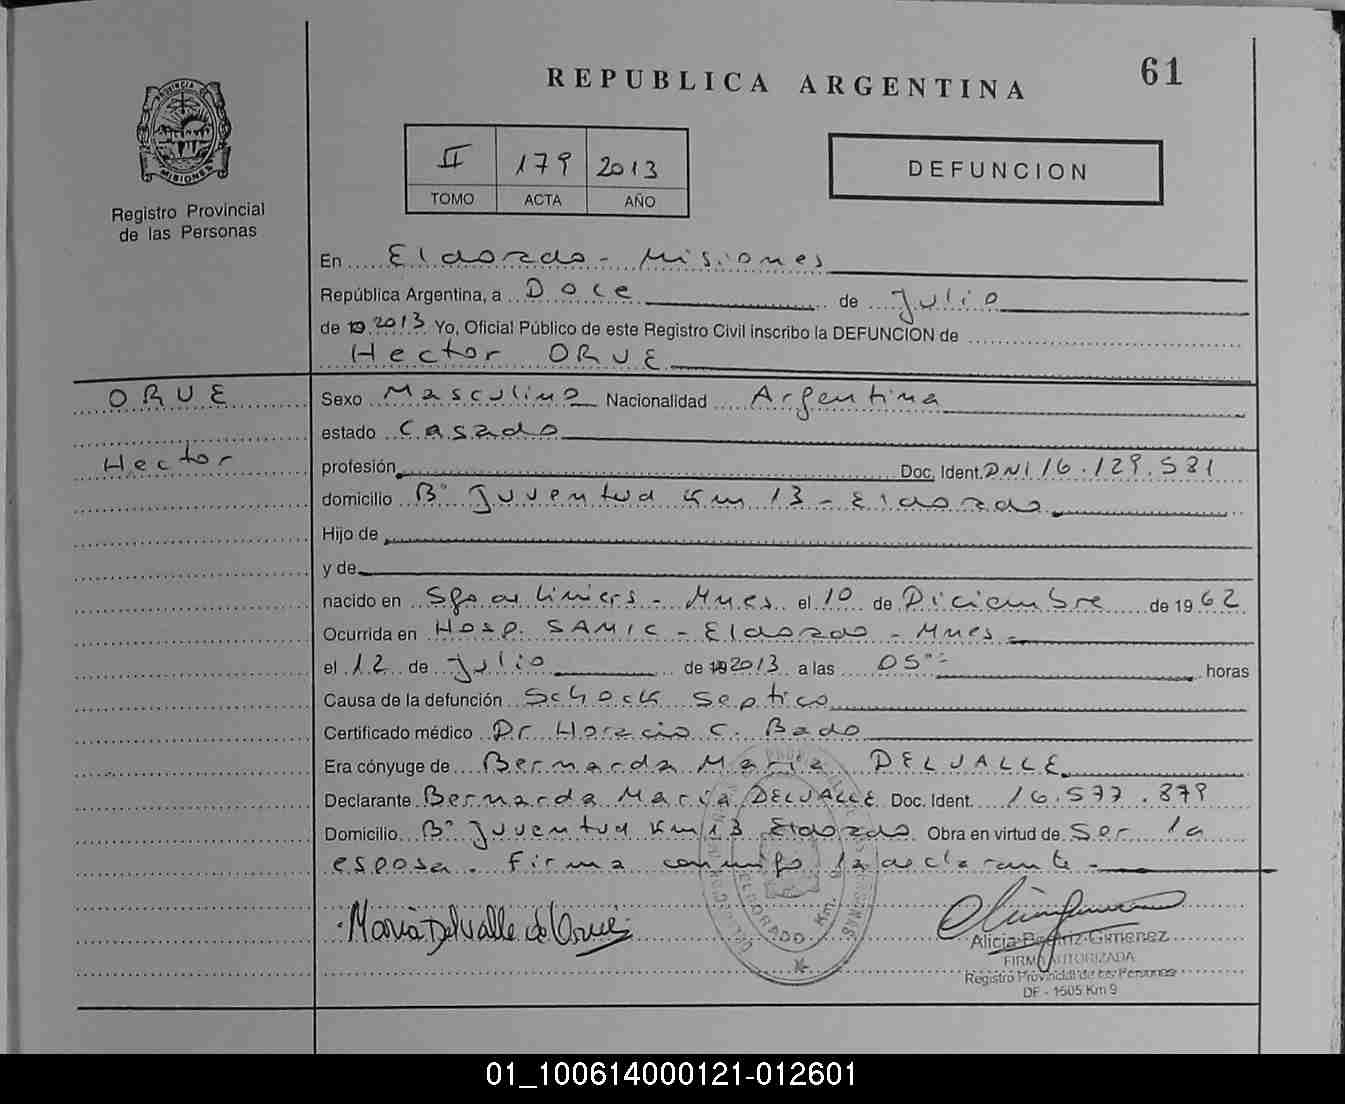 REPUBLICA ARGENTINA
61
PROVINCIA DE
MISIONES
Registro Provincial
de las Personas
II 179 2013
TOMO ACTA AÑO
DEFUNCION
En Eldorado - Misiones
República Argentina, a Doce de Julio
de 2013 Yo, Oficial Público de este Registro Civil inscribo la DEFUNCION de
Hector ORUE
ORUE
Hector
Sexo Masculino Nacionalidad Argentina
estado Casado
profesión Doc. Ident. DNI 16.129.581
domicilio B° Juventud Km 13 - Eldorado
Hijo de
y de
nacido en Sgo de Liniers - Mnes el 10 de Diciembre de 1962
Ocurrida en Hosp. SAMIC - Eldorado - Mnes -
el 12 de Julio de 2013 a las 05 horas
Causa de la defunción Schock Septico
Certificado médico Dr Horacio C. Bado
Era cónyuge de Bernarda Maria DELVALLE
Declarante Bernarda Maria DELVALLE Doc. Ident. 16.577.879
Domicilio B° Juventud Km 13 Eldorado Obra en virtud de Ser la
esposa. Firma conmigo la declarante -
ELDORADO Km. 9
Maria Delvalle de Orue
Alicia Beatriz Gimenez
FIRMA AUTORIZADA
Registro Provincial de las Personas
DF - 1505 Km 9
01_100614000121-012601